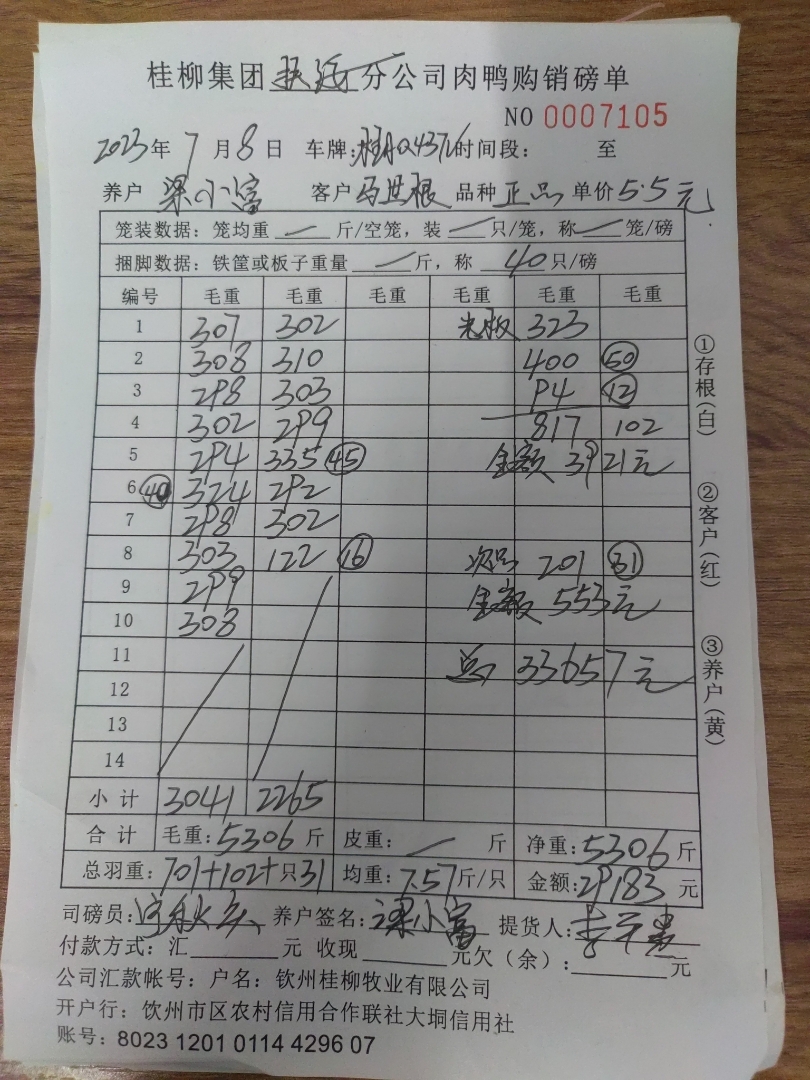 桂柳集团 分公司肉鸭购销磅单
NO 0007105
2023年 7 月 8 日 车牌:桂AQ4376 时间段: 至
养户 梁小富 客户 马世根 品种 正品 单价 5.5元
笼装数据:笼均重 — 斤/空笼,装 — 只/笼,称 — 笼/磅
捆脚数据:铁筐或板子重量 — 斤,称 40 只/磅
编号 毛重 毛重 毛重 毛重 毛重 毛重
1 307 302 光板 323
2 308 310 400 50
3 298 303 94 12
4 302 299 817 102
5 294 335 45 金额 3921元
6 40 324 292
7 298 302
8 303 122 16 次品 201 31
9 299 金额 553元
10 308
11 总 33657元
12
13
14
小计 3041 2265
合计 毛重:5306 斤 皮重: — 斤 净重:5306 斤
总羽重:701+102+ 只31 均重:7.57斤/只 金额:29183 元
司磅员: 养户签名:梁小富 提货人:
付款方式:汇 元 收现 元欠(余): 元
公司汇款帐号:户名:钦州桂柳牧业有限公司
开户行:饮州市区农村信用合作联社大垌信用社
账号:8023 1201 0114 4296 07
①存根(白)
②客户(红)
③养户(黄)